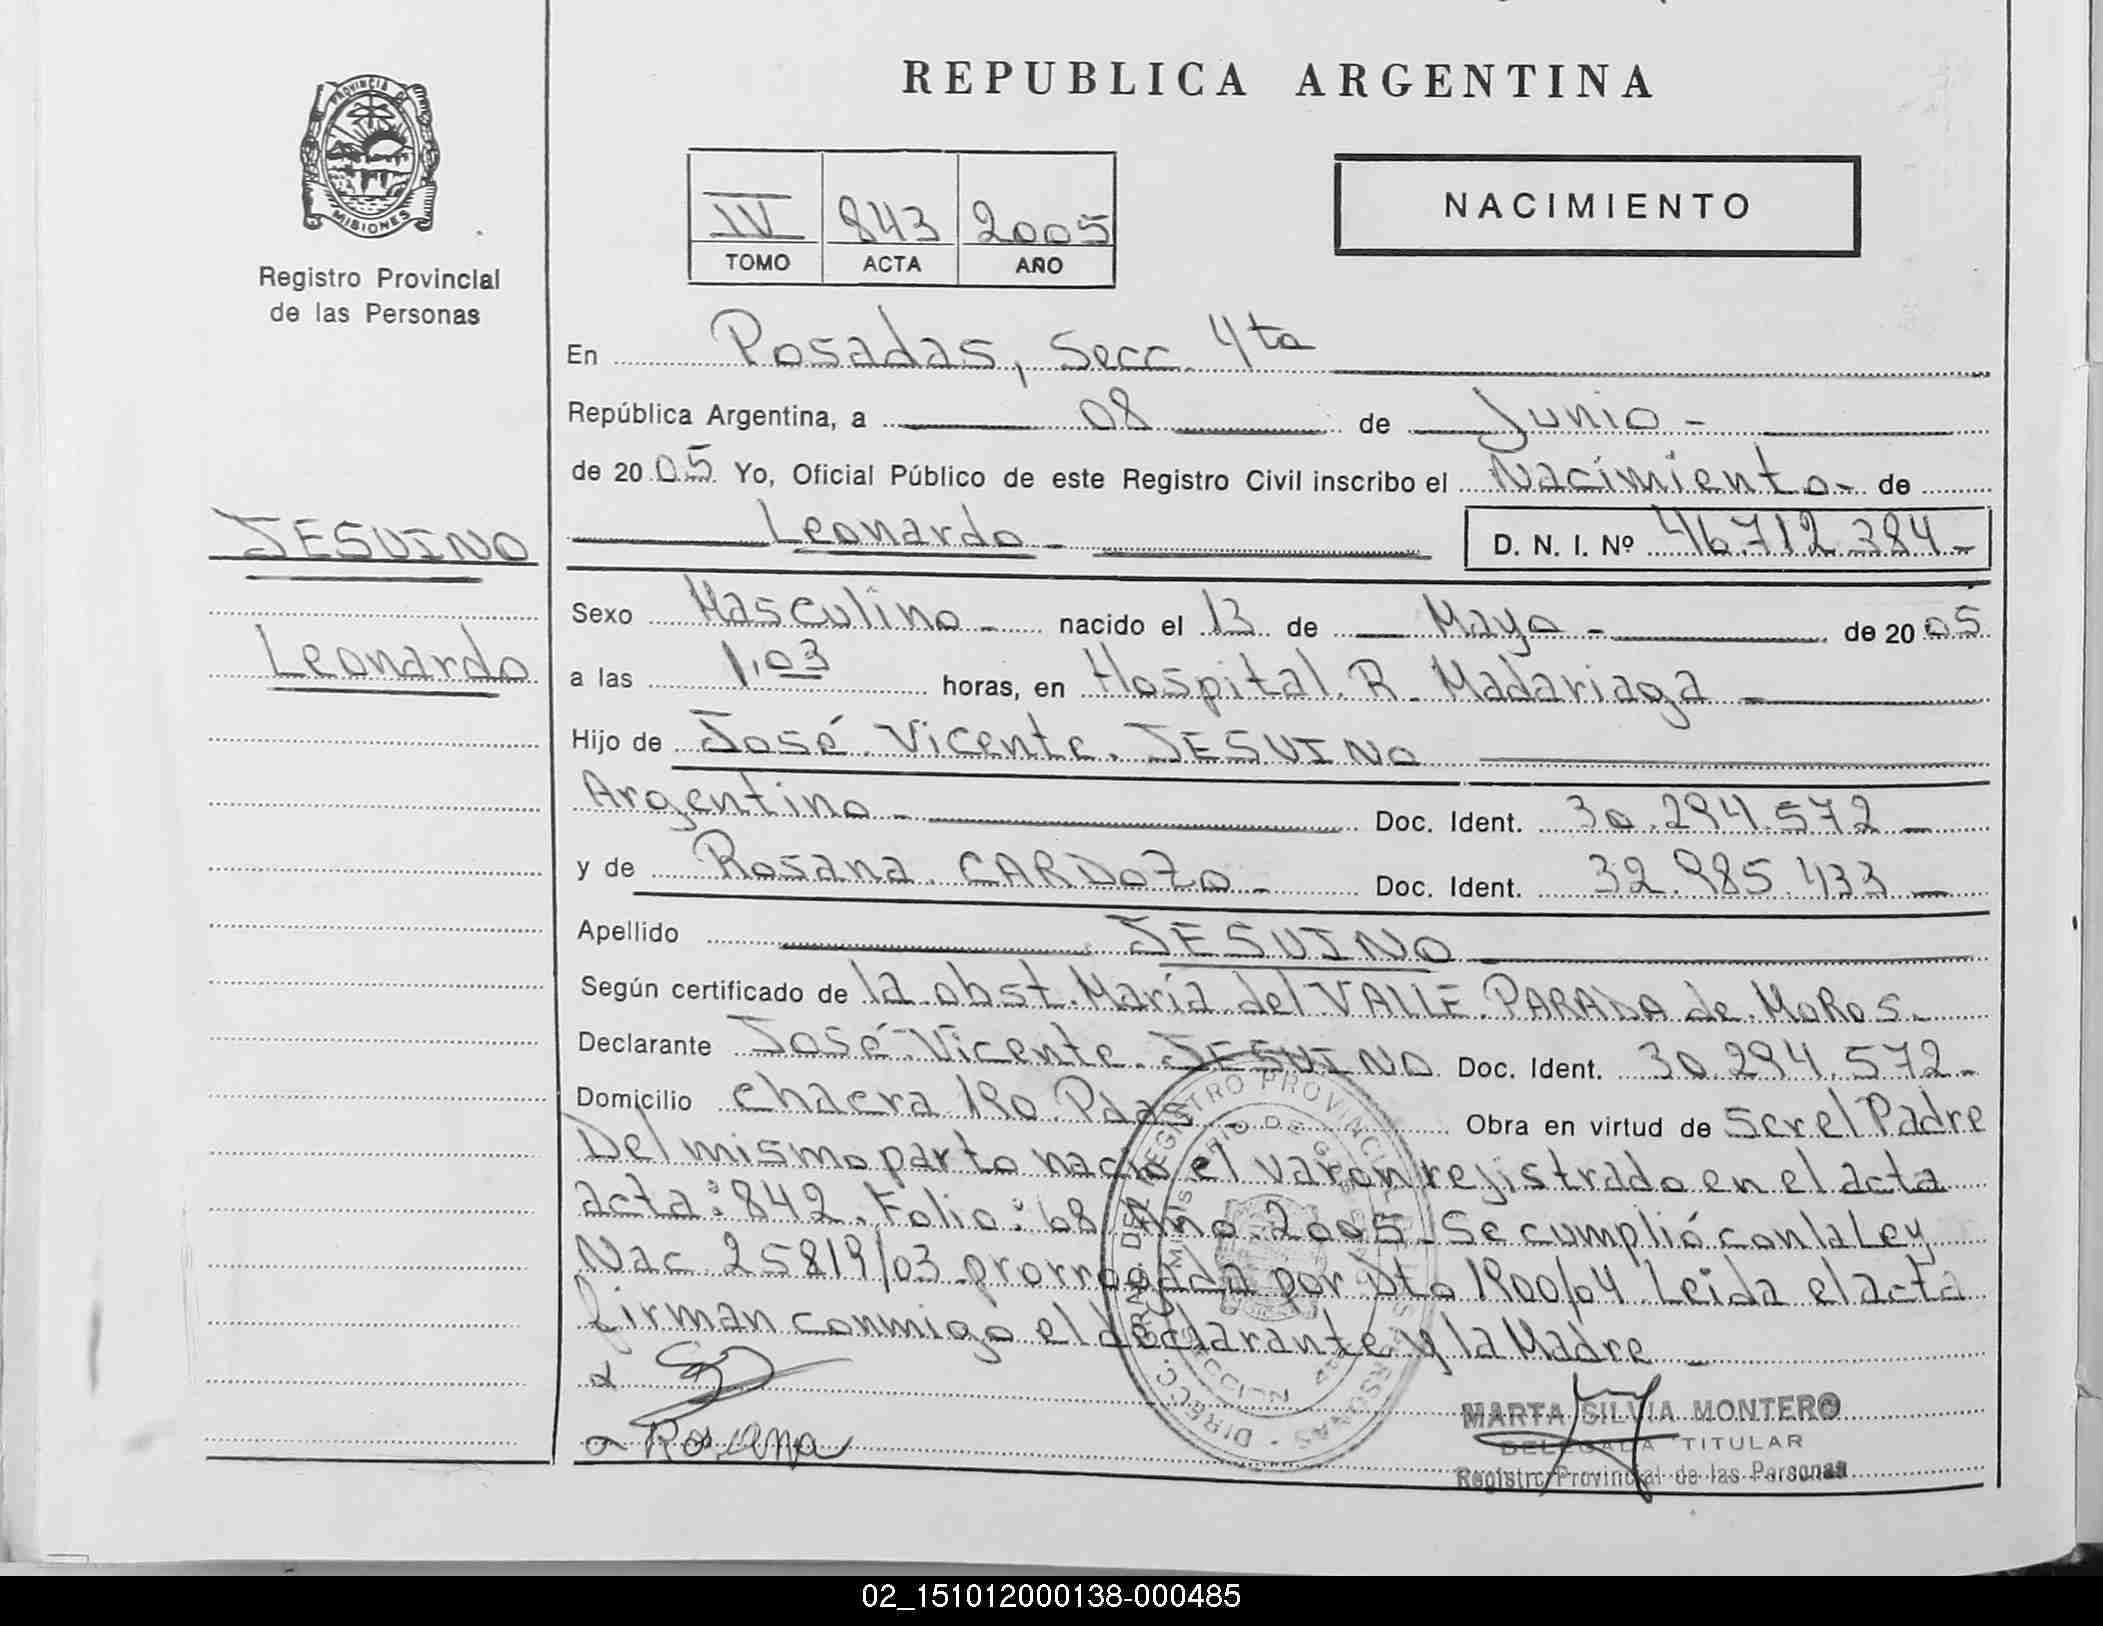 REPUBLICA ARGENTINA
PROVINCIA DE
MISIONES
Registro Provincial
de las Personas
IV 843 2005
TOMO ACTA AÑO
NACIMIENTO
En Posadas, Secc. 4ta
República Argentina, a 08 de Junio -
de 2005. Yo, Oficial Público de este Registro Civil inscribo el Nacimiento - de
JESUINO
Leonardo -
D. N. I. Nº 46.712.384 -
Leonardo
Sexo Masculino - nacido el 13 de Mayo - de 2005
a las 1.03 horas, en Hospital R. Madariaga -
Hijo de José Vicente JESUINO
Argentino - Doc. Ident. 30.294.572 -
y de Rosana CARDOZO - Doc. Ident. 32.985.433 -
Apellido JESUINO
Según certificado de la obst. María del VALLE PARADA de MOROS.
Declarante José Vicente JESUINO Doc. Ident. 30.294.572 -
Domicilio chacra 190 Pdas - Obra en virtud de Ser el Padre
Del mismo parto nacio el varon rejistrado en el acta
acta: 842. Folio: 68 Año 2005. Se cumplió con la Ley
Nac 25819/03 prorrogada por Dto 1900/04 Leida el acta
firman conmigo el declarante y la Madre -
Rosana
MARTA SILVIA MONTERO
DELEGADA TITULAR
Registro Provincial de las Personas
02_151012000138-000485